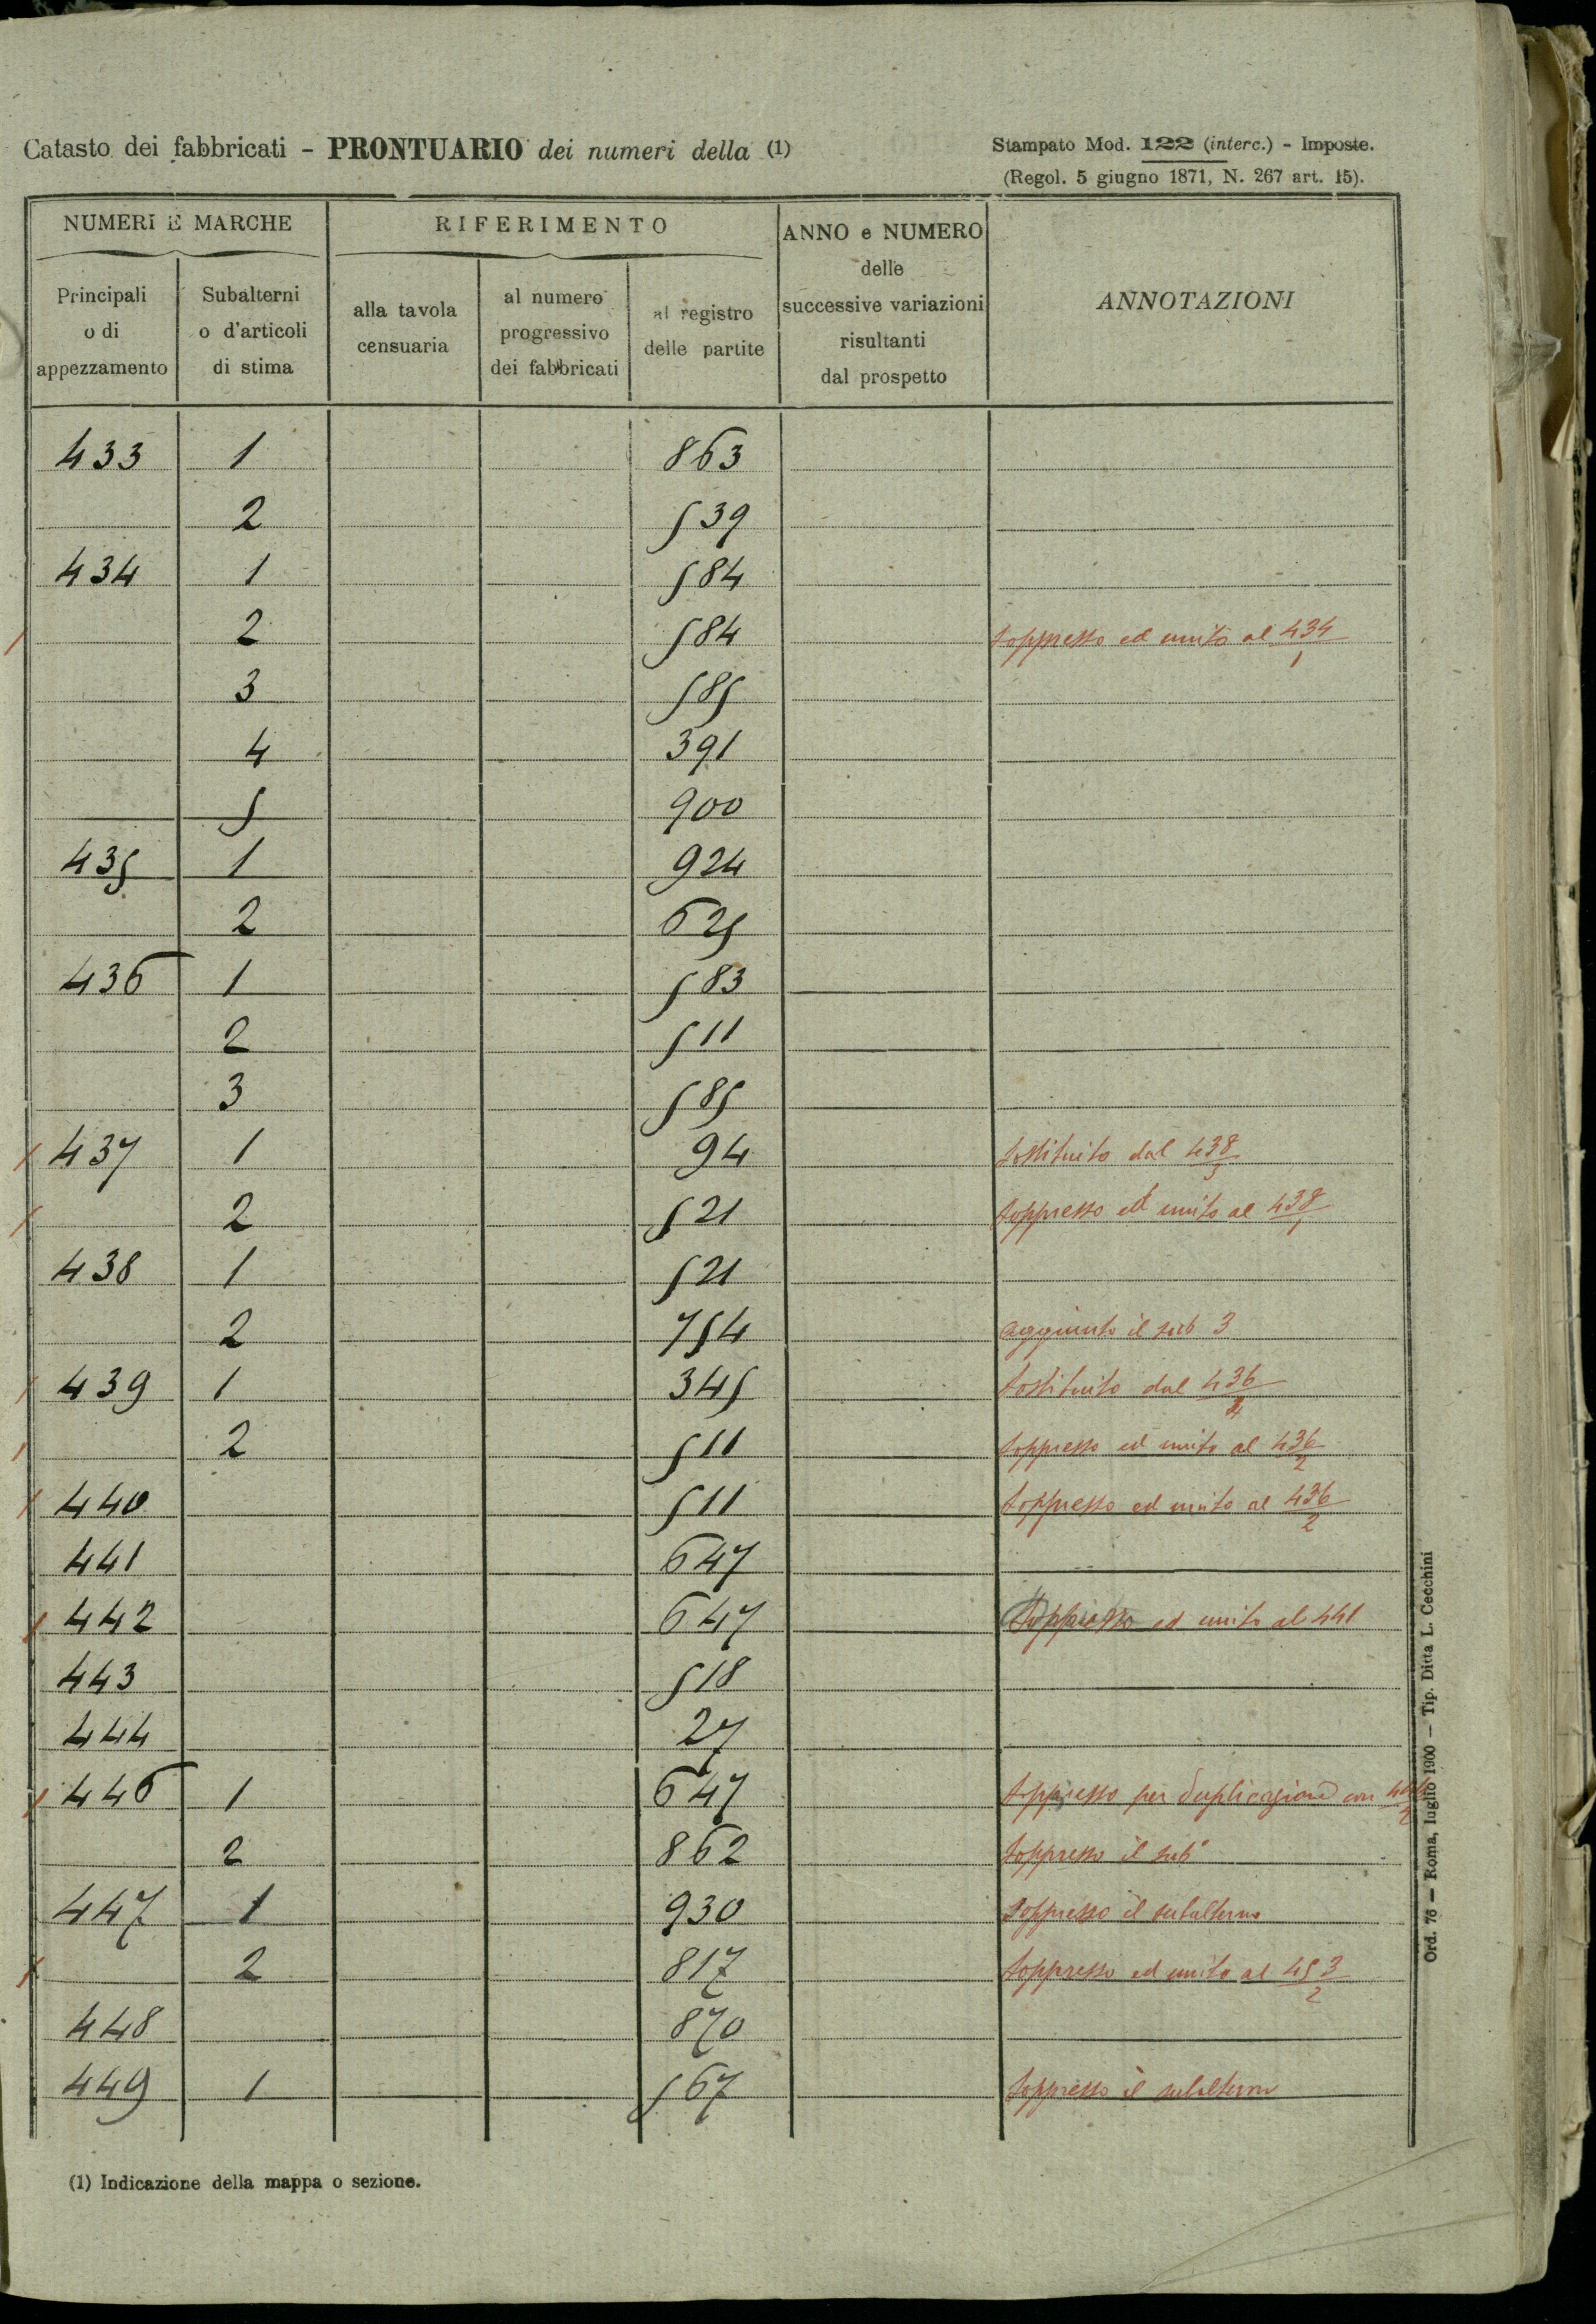 Catasto dei fabbricati - PRONTUARIO dei numeri della (1)
Stampato Mod. 122 (interc.) - Imposte.
(Regol. 5 giugno 1871, N. 267 art. 15).
NUMERI E MARCHE
RIFERIMENTO
ANNO e NUMERO delle successive variazioni risultanti dal prospetto
ANNOTAZIONI
Principali o di appezzamento
Subalterni o d'articoli di stima
alla tavola censuaria
al numero progressivo dei fabbricati
al registro delle partite
433 1 863
2 539
434 1 584
2 584 soppresso ed unito al 434/1
3 585
4 391
5 900
435 1 924
2 625
436 1 583
2 511
3 585
437 1 94 sostituito dal 438/3
2 521 soppresso ed unito al 438/1
438 1 521
2 754 aggiunto il sub 3
439 1 345 sostituito dal 436/4
2 511 soppresso ed unito al 436/2
440 511 soppresso ed unito al 436/2
441 647
442 647 Soppresso ed unito al 441
443 518
444 27
446 1 647 soppresso per duplicazione con
2 862 soppresso il sub°
447 1 930 Soppresso il subalterno
2 817 soppresso ed unito al 453/2
448 870
449 1 567 soppresso il subalterno
(1) Indicazione della mappa o sezione.
Ord. 76 — Roma, luglio 1900 — Tip. Ditta L. Cecchini